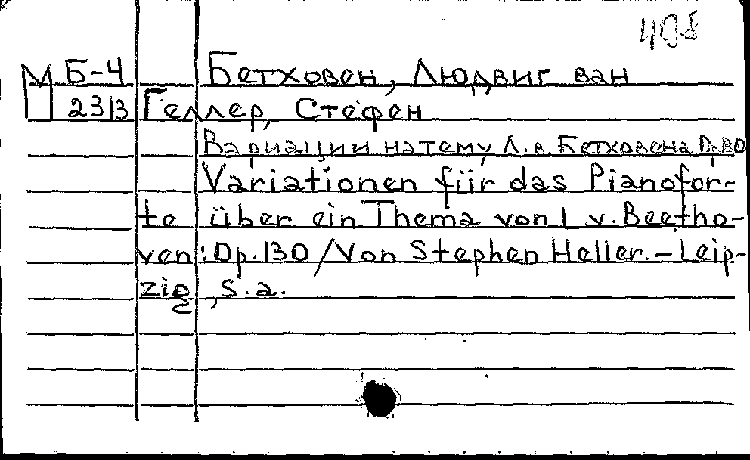 М Б-4 Бетховен, Людвиг ван
23/3 Геллер, Стефен
Вариации на тему Л. в. Бетховена
Variationen für das Pianofor-
te über ein Thema von L. v. Beetho-
ven: Op. 130 / Von Stephen Heller. - Leip-
zig, S. a.